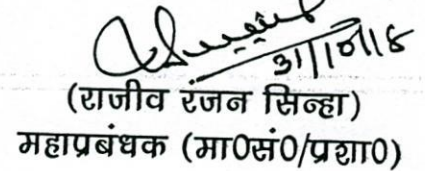 31/10/18
(राजीव रंजन सिन्हा)
महाप्रबंधक (मा0सं0/प्रशा0)